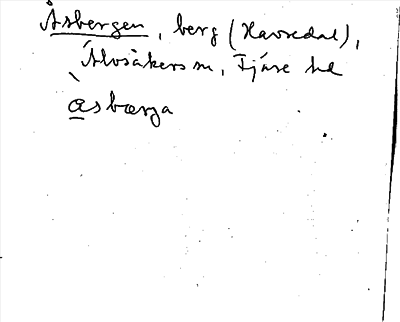 Åsbergen, berg (Havredal),
Älvsåkers sn, Fjäre hd
`
åsbærga